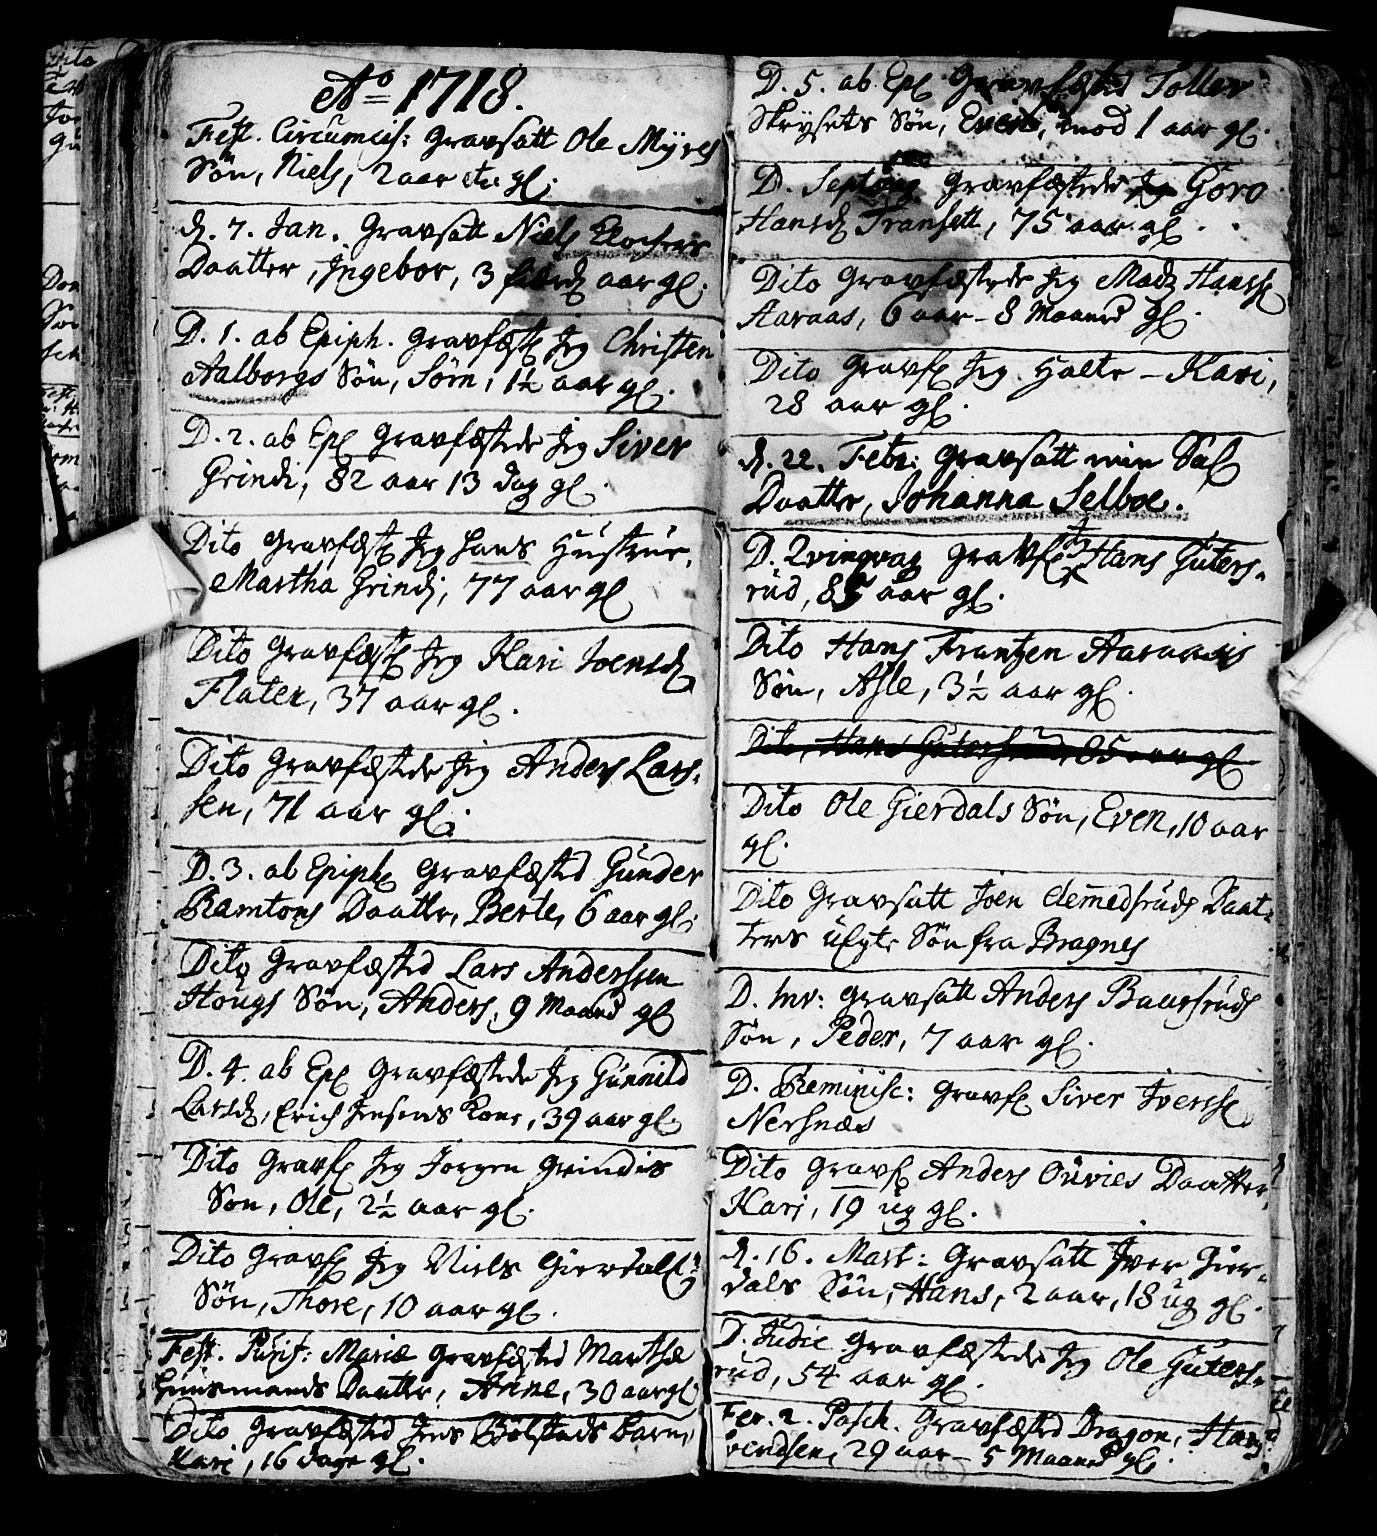 Ao 1718.
Fest. Circumcis: Gravsatt Ole Myres
Søn, Niels, 2 aar gl.
d. 7. Jan. Gravsatt Niels Klochers
Daatter, Ingebor, 3 aar gl.
D. 1. ab Epiph. Gravfæst Jeg Christen
Aalborgs Søn, Sørn, 1½ aar gl.
D. 2. ab Epi Gravfæstede Jeg Siver
Grindi, 82 aar 13 dag gl.
Dito Gravfæst Jeg hans Hustrue,
Martha Grindj, 77 aar gl
Dito Gravfæst Jeg Kari Joensd
Flater, 37 aar gl.
Dito Gravfæstede Jeg Anders Lars-
sen, 71 aar gl.
D. 3. ab Epiph Gravfæsted Gunder
Ramtons Daatter, Berte, 6 aar gl.
Dito Gravfæsted Lars Anderssen
Hougs Søn, Anders, 9 Maaned gl
D. 4. ab Epi Gravfæstede Jeg Gunnild
Larsd, Erich Jensens Kone, 39 aar gl.
Dito Gravf Jeg Jørgen Grindis
Søn, Ole, 2½ aar gl.
Dito Gravf Jeg Niels Gierdals
Søn, Thore, 10 aar gl.
Fest. Purif: Mariæ Gravfæsted Marthe
Huusmands Daatter, Anne, 30 aar gl
Dito Gravfæsted Jens Bølstads barn,
Kari, 16 dage gl.
D. 5. ab Epi Gravfæsted Toller
Skrysets Søn, Even, mod 1 aar gl.
D. Septuag Gravfæstede Jeg Goro
Hansd Transett, 75 aar gl.
Dito Gravfæstede Jeg Madz Hanss
Aaraas, 6 aar - 8 Maaned gl.
Dito Gravf Jeg Halte - Kari,
28 aar gl.
d. 22. Febr: Gravsatt min Sal
Daatter, Johanna Selboe.
D. Qvinqvag Gravf Jeg Hans Guters-
rud, 85 aar gl.
Dito Hans Frantzen Aaraasis
Søn, Asle, 3½ aar gl.
Dito, Hans Gutersrud, 85 aar gl
Dito Ole Gierdals Søn, Even, 10 aar
gl.
Dito Gravsatt Joen Clemedsruds Daat-
ters uegte Søn fra Bragnes
D. Inv: Gravsatt Anders Buursruds
Søn, Peder, 7 aar gl.
D. Reminisc: Gravf Siver Iverss
Nersnæs
Dito Gravf Anders Ouvies Daatter
Kari, 19 ug gl.
d. 16. Mart: Gravsatt Iver Gier-
dals Søn, Hans, 2 aar, 18 ug gl.
D. Judic Gravfæstede Jeg Ole Guters-
rud, 54 aar gl.
Fer. 2. Pasch. Gravfæsted Dragon, Hans
Svendsen, 29 aar - 5 Maaned gl.